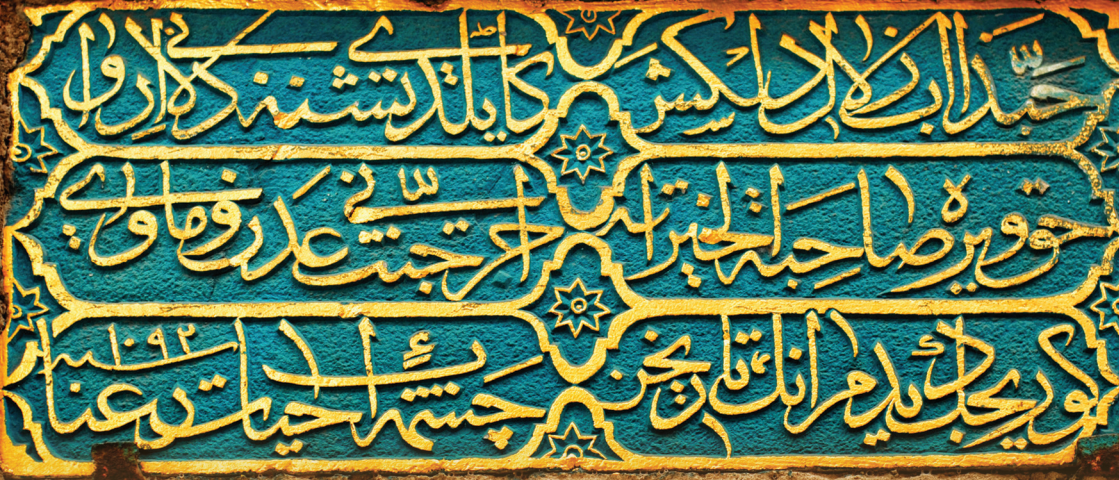 حبذا آب زلال دلكش كايلدى تشنه دلانى اروا
حق ويره صاحبة الخيراته اجرنى جنت عدن و ماوى
كوريجك داعئ ديدم انك تاريخن چشمهٔ آب حيات رعنا سنه ١٠٩٢